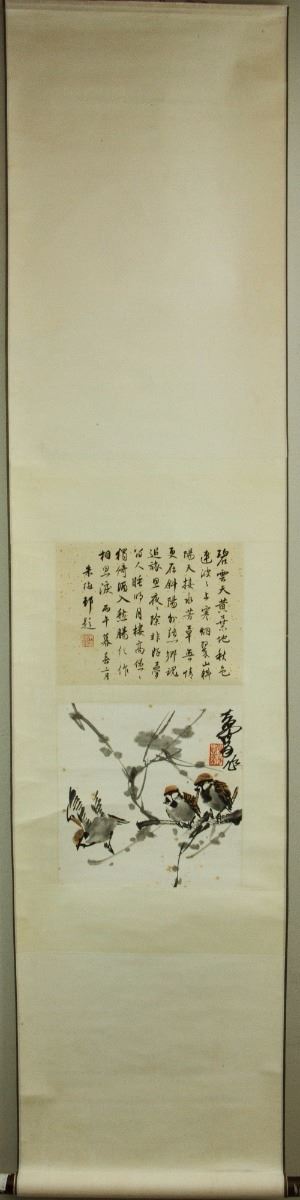 碧雲天黃葉地秋色
連波〻上寒烟翠山映斜
陽天接水芳草無情
更在斜陽外黯鄉魂
追旅思夜〻除非好夢
留人睡明月樓高休
獨倚酒入愁腸化作
相思淚 丙午暮春
朱梅邨題
作